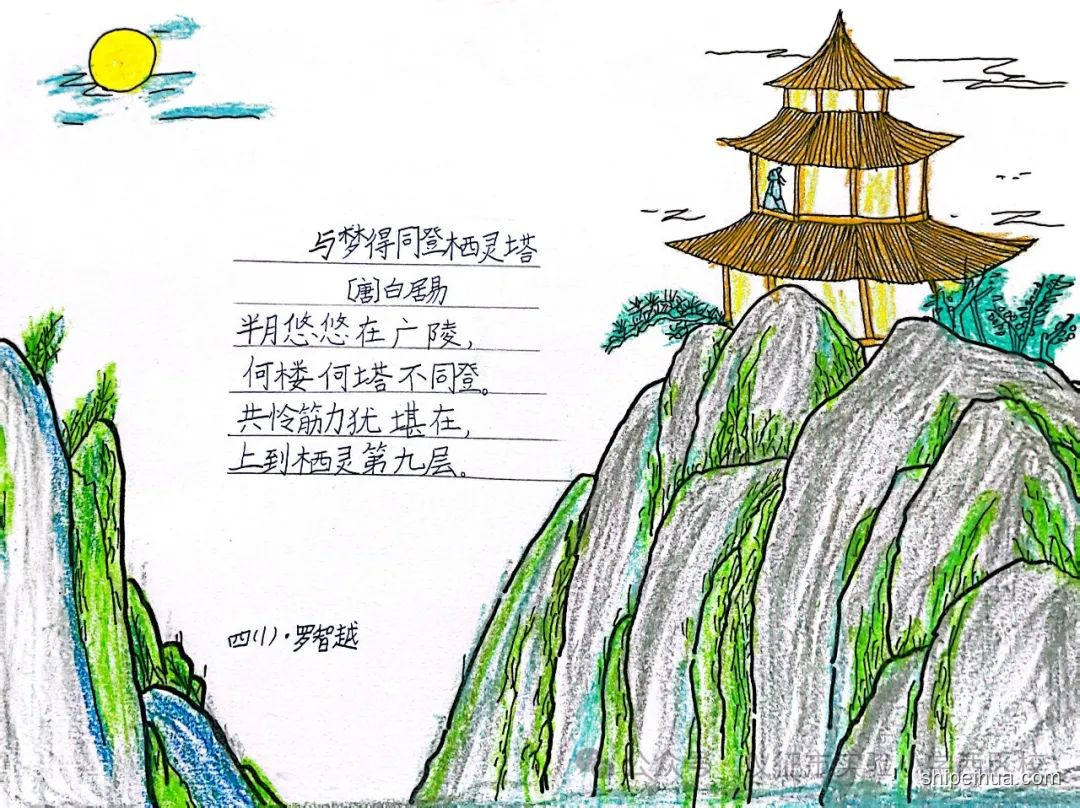 与梦得同登栖灵塔
[唐]白居易
半月悠悠在广陵，
何楼何塔不同登。
共怜筋力犹堪在，
上到栖灵第九层。
四(1)·罗智越
shipeihua.com